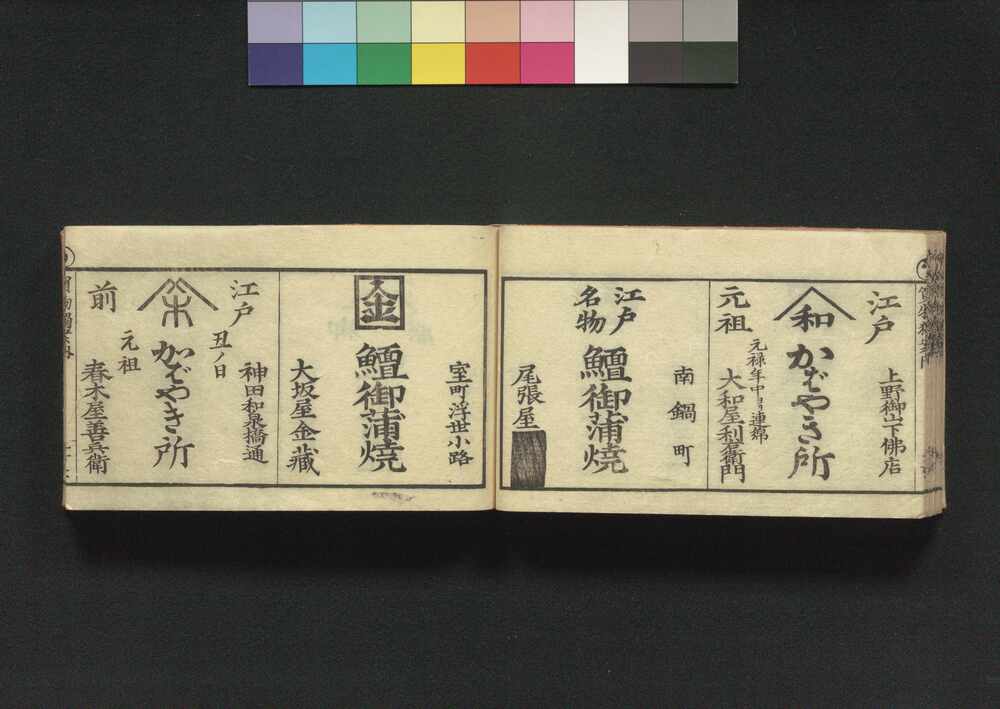 江戸
上野御山下佛店
和
かばやき所
元禄年中ヨリ連綿
元祖
大和屋利兵衛門
南鍋町
江戸
名物
鱣御蒲焼
尾張屋
室町浮世小路
鱣御蒲焼
大坂屋金蔵
江戸
神田和泉橋通
丑ノ日
かばやき所
元祖
春木屋善兵衛
前